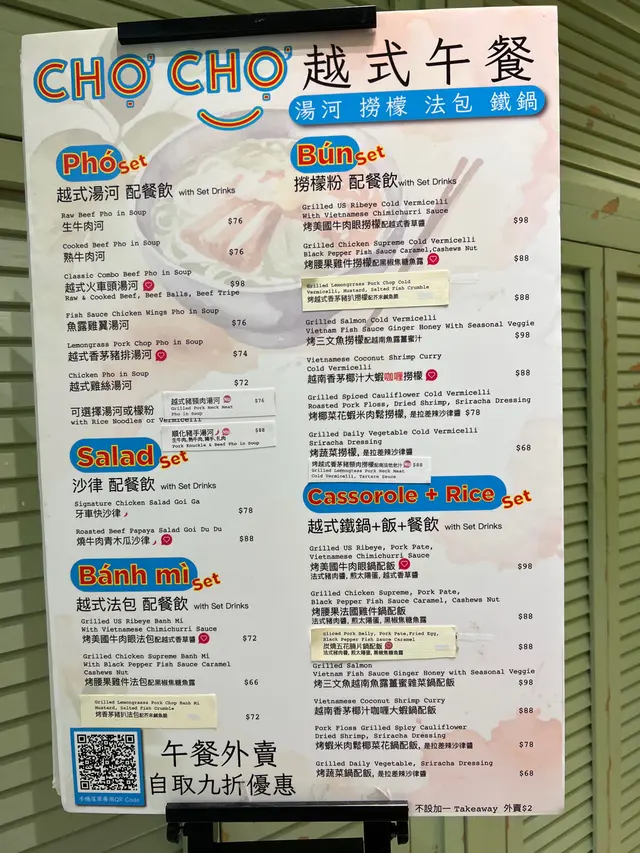 CHỢ CHỢ 越式午餐
湯河 撈檬 法包 鐵鍋
Phó Set
越式湯河 配餐飲 with Set Drinks
Raw Beef Pho in Soup
生牛肉河 $76
Cooked Beef Pho in Soup
熟牛肉河 $76
Classic Combo Beef Pho in Soup
越式火車頭湯河 $98
Raw & Cooked Beef, Beef Balls, Beef Tripe
Fish Sauce Chicken Wings Pho in Soup
魚露雞翼湯河 $76
Lemongrass Pork Chop Pho in Soup
越式香茅豬排湯河 $74
Chicken Pho in Soup
越式雞絲湯河 $72
可選擇湯河或檬粉
with Rice Noodles or Vermicelli
越式豬頸肉湯河 $76
Grilled Pork Neck Meat
Pho in Soup
順化豬手湯河 $88
生牛肉, 熟牛肉, 豬手, 扎肉
Pork Knuckle & Beef Pho in Soup
Salad Set
沙律 配餐飲 with Set Drinks
Signature Chicken Salad Goi Ga
牙車快沙律 $78
Roasted Beef Papaya Salad Goi Du Du
燒牛肉青木瓜沙律 $88
Bánh mì Set
越式法包 配餐飲 with Set Drinks
Grilled US Ribeye Banh Mi
With Vietnamese Chimichurri Sauce
烤美國牛肉眼法包配越式香草醬 $72
Grilled Chicken Supreme Banh Mi
With Black Pepper Fish Sauce Caramel
Cashews Nut
烤腰果雞件法包配黑椒焦糖魚露 $66
Grilled Lemongrass Pork Chop Banh Mi
Mustard, Salted Fish Crumble
烤香茅豬扒法包配芥末鹹魚脆 $72
手機落單專用QR Code
午餐外賣
自取九折優惠
Bún Set
撈檬粉 配餐飲 with Set Drinks
Grilled US Ribeye Cold Vermicelli
With Vietnamese Chimichurri Sauce
烤美國牛肉眼撈檬配越式香草醬 $98
Grilled Chicken Supreme Cold Vermicelli
Black Pepper Fish Sauce Caramel,Cashews Nut
烤腰果雞件撈檬配黑椒焦糖魚露 $88
Grilled Lemongrass Pork Chop Cold
Vermicelli, Mustard, Salted Fish Crumble
烤越式香茅豬扒撈檬配芥末鹹魚脆 $88
Grilled Salmon Cold Vermicelli
Vietnam Fish Sauce Ginger Honey With Seasonal Veggie
烤三文魚撈檬配越南魚露薑蜜汁 $98
Vietnamese Coconut Shrimp Curry
Cold Vermicelli
越南香茅椰汁大蝦咖喱撈檬 $88
Grilled Spiced Cauliflower Cold Vermicelli
Roasted Pork Floss, Dried Shrimp, Sriracha Dressing
烤椰菜花蝦米肉鬆撈檬, 是拉差辣沙律醬 $78
Grilled Daily Vegetable Cold Vermicelli
Sriracha Dressing
烤蔬菜撈檬, 是拉差辣沙律醬 $68
烤越式香茅豬頸肉撈檬配南法他他汁 $88
Grilled Lemongrass Pork Neck Meat
Cold Vermicelli, Tartare Sauce
Cassorole + Rice Set
越式鐵鍋+飯+餐飲 with Set Drinks
Grilled US Ribeye, Pork Pate,
Vietnamese Chimichurri Sauce
烤美國牛肉眼鍋配飯 $98
法式豬肉醬, 煎太陽蛋, 越式香草醬
Grilled Chicken Supreme, Pork Pate,
Black Pepper Fish Sauce Caramel, Cashews Nut
烤腰果法國雞件鍋配飯 $88
法式豬肉醬, 煎太陽蛋, 黑椒焦糖魚露
Sliced Pork Belly, Pork Pate,Fried Egg,
Black Pepper Fish Sauce Caramel
炭燒五花腩片鍋配飯 $88
法式豬肉醬, 煎太陽蛋, 黑椒焦糖魚露
Grilled Salmon
Vietnam Fish Sauce Ginger Honey with Seasonal Veggie
烤三文魚越南魚露薑蜜雜菜鍋配飯 $98
Vietnamese Coconut Shrimp Curry
越南香茅椰汁咖喱大蝦鍋配飯 $88
Pork Floss Grilled Spicy Cauliflower
Dried Shrimp, Sriracha Dressing
烤蝦米肉鬆椰菜花鍋配飯, 是拉差辣沙律醬 $78
Grilled Daily Vegetable, Sriracha Dressing
烤蔬菜鍋配飯, 是拉差辣沙律醬 $68
不設加一 Takeaway 外賣$2